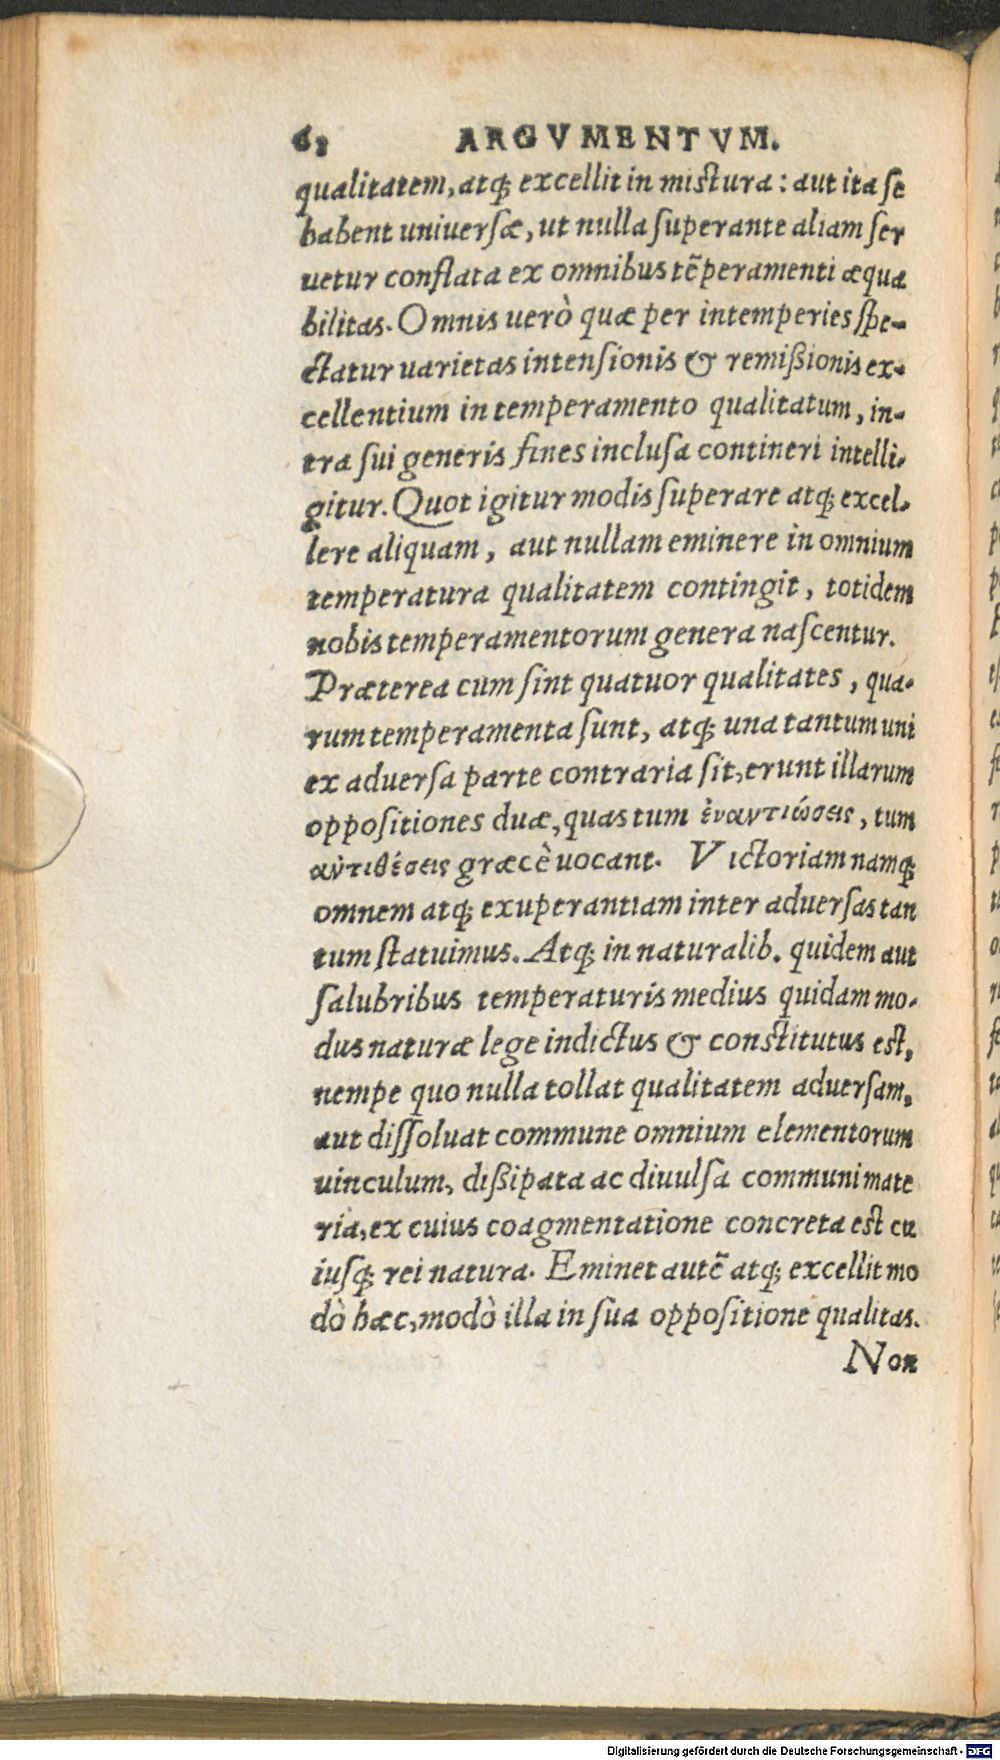 62 ARGVMENTVM.
qualitatem, atq; excellit in mistura: aut ita se
habent uniuersæ, ut nulla superante aliam ser
uetur conflata ex omnibus tẽperamenti æqua
bilitas. Omnis uerò quæ per intemperies spe-
ctatur uarietas intensionis & remißionis ex-
cellentium in temperamento qualitatum, in-
tra sui generis fines inclusa contineri intelli-
gitur. Quot igitur modis superare atq; excel-
lere aliquam, aut nullam eminere in omnium
temperatura qualitatem contingit, totidem
nobis temperamentorum genera nascentur.
Præterea cum sint quatuor qualitates, qua-
rum temperamenta sunt, atq; una tantum uni
ex aduersa parte contraria sit, erunt illarum
oppositiones duæ, quas tum ἐναντιώσεις, tum
αὐτιθέσεις græcè uocant. Victoriam namq;
omnem atq; exuperantiam inter aduersas tan
tum statuimus. Atq; in naturalib. quidem aut
salubribus temperaturis medius quidam mo-
dus naturæ lege indictus & constitutus est,
nempe quo nulla tollat qualitatem aduersam,
aut dissoluat commune omnium elementorum
uinculum, dißipata ac diuulsa communi mate
ria, ex cuius coagmentatione concreta est cu
iusq; rei natura. Eminet autẽ atq; excellit mo
dò hæc, modò illa in sua oppositione qualitas.
Non
Digitalisierung gefördert durch die Deutsche Forschungsgemeinschaft - DFG